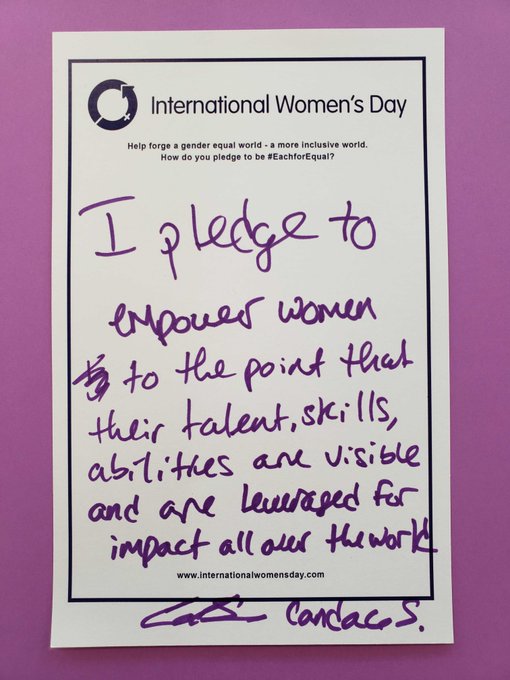 International Women's Day
Help forge a gender equal world - a more inclusive world.
How do you pledge to be #EachforEqual?
I pledge to
empower women
to the point that
their talent, skills,
abilities are visible
and are leveraged for
impact all over the world
www.internationalwomensday.com
Candace S.